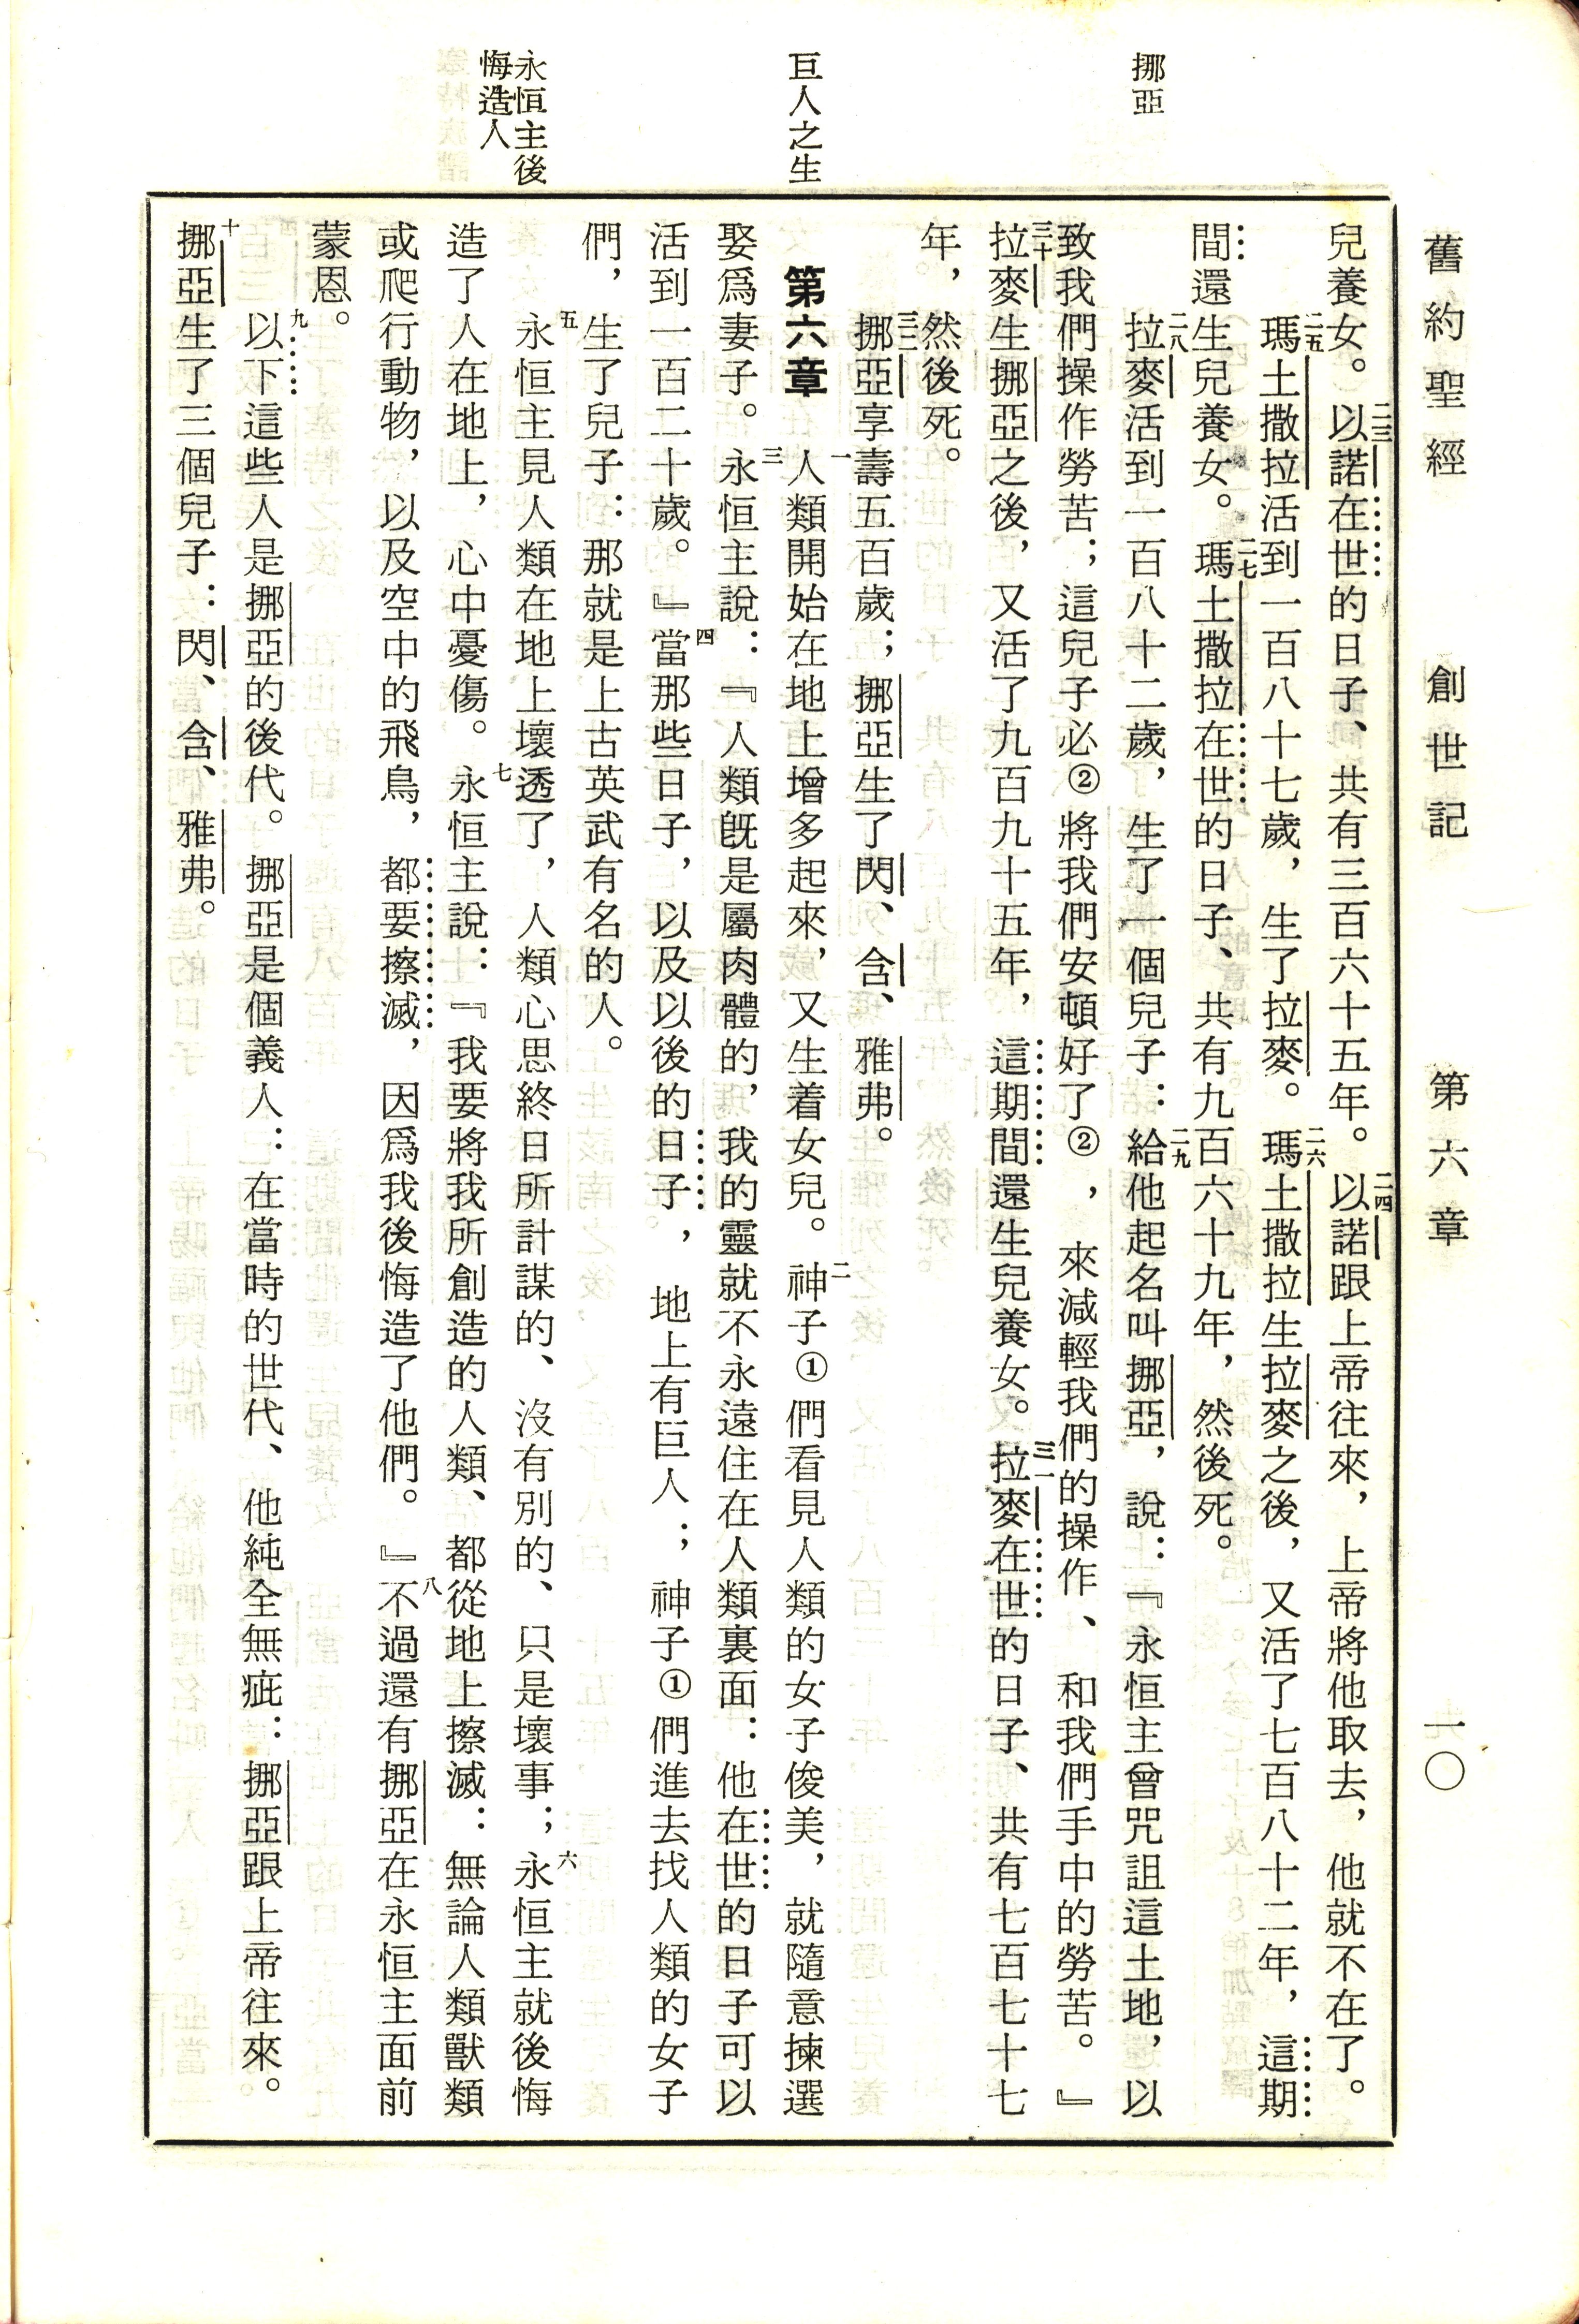 舊約聖經　創世記　第六章　一〇
挪亞
巨人之生
永恒主後
悔造人
兒養女。二三以諾在世的日子、共有三百六十五年。二四以諾跟上帝往來，上帝將他取去，他就不在了。
二五瑪土撒拉活到一百八十七歲，生了拉麥。二六瑪土撒拉生拉麥之後，又活了七百八十二年，這期
間還生兒養女。二七瑪土撒拉在世的日子、共有九百六十九年，然後死。
二八拉麥活到一百八十二歲，生了一個兒子：二九給他起名叫挪亞，說：『永恒主曾咒詛這土地，以
致我們操作勞苦；這兒子必②將我們安頓好了②，來減輕我們的操作、和我們手中的勞苦。』
三十拉麥生挪亞之後，又活了九百九十五年，這期間還生兒養女。三一拉麥在世的日子、共有七百七十七
年，然後死。
三二挪亞享壽五百歲；挪亞生了閃、含、雅弗。
第六章　一人類開始在地上增多起來，又生着女兒。二神子①們看見人類的女子俊美，就隨意揀選
娶爲妻子。三永恒主說：『人類旣是屬肉體的，我的靈就不永遠住在人類裏面：他在世的日子可以
活到一百二十歲。』四當那些日子，以及以後的日子，地上有巨人；神子①們進去找人類的女子
們，生了兒子：那就是上古英武有名的人。
五永恒主見人類在地上壞透了，人類心思終日所計謀的、沒有別的、只是壞事；六永恒主就後悔
造了人在地上，心中憂傷。七永恒主說：『我要將我所創造的人類、都從地上擦滅：無論人類獸類
或爬行動物，以及空中的飛鳥，都要擦滅，因爲我後悔造了他們。』八不過還有挪亞在永恒主面前
蒙恩。
九以下這些人是挪亞的後代。挪亞是個義人：在當時的世代、他純全無疵：挪亞跟上帝往來。
十挪亞生了三個兒子：閃、含、雅弗。